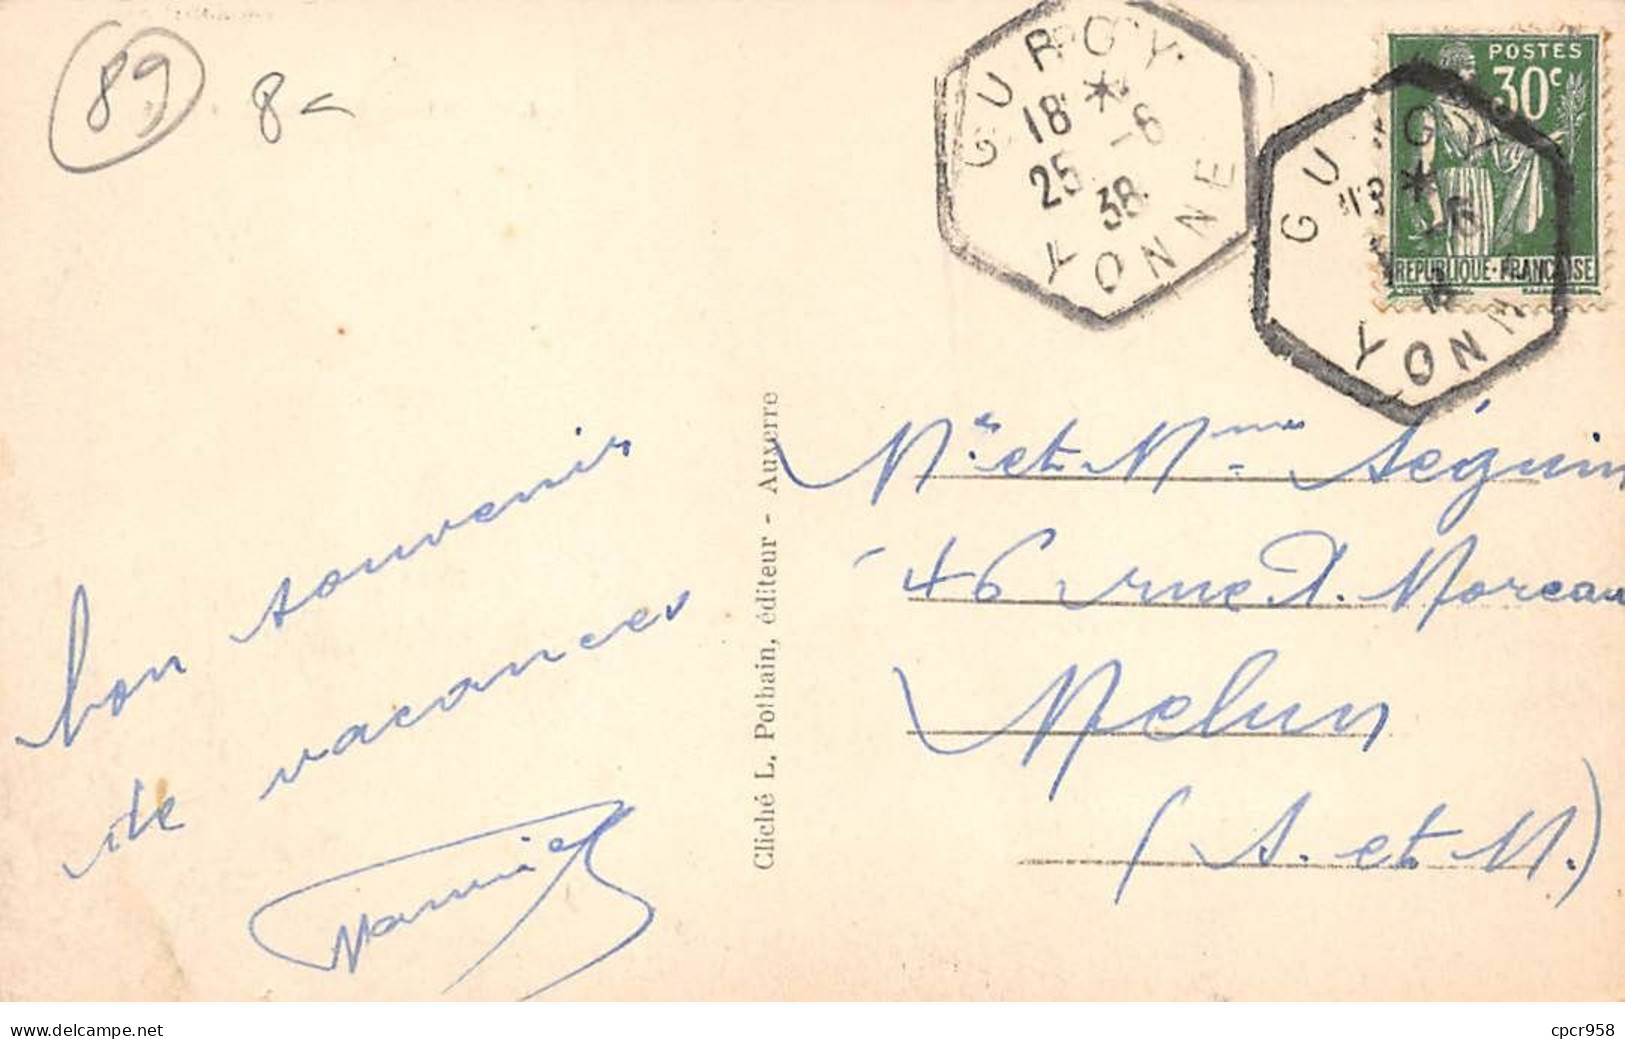 89
8
GURGY
18 *
25 -6
38
YONNE
POSTES
30c
REPUBLIQUE·FRANCAISE
GURGY
18 *
-6
YONNE
bon souvenir
de vacances
Cliché L. Pothain, éditeur - Auxerre
Mr et Mme Séguin
46 rue A. Moreau
Melun
(S. et M.)
www.delcampe.net
cpcr958